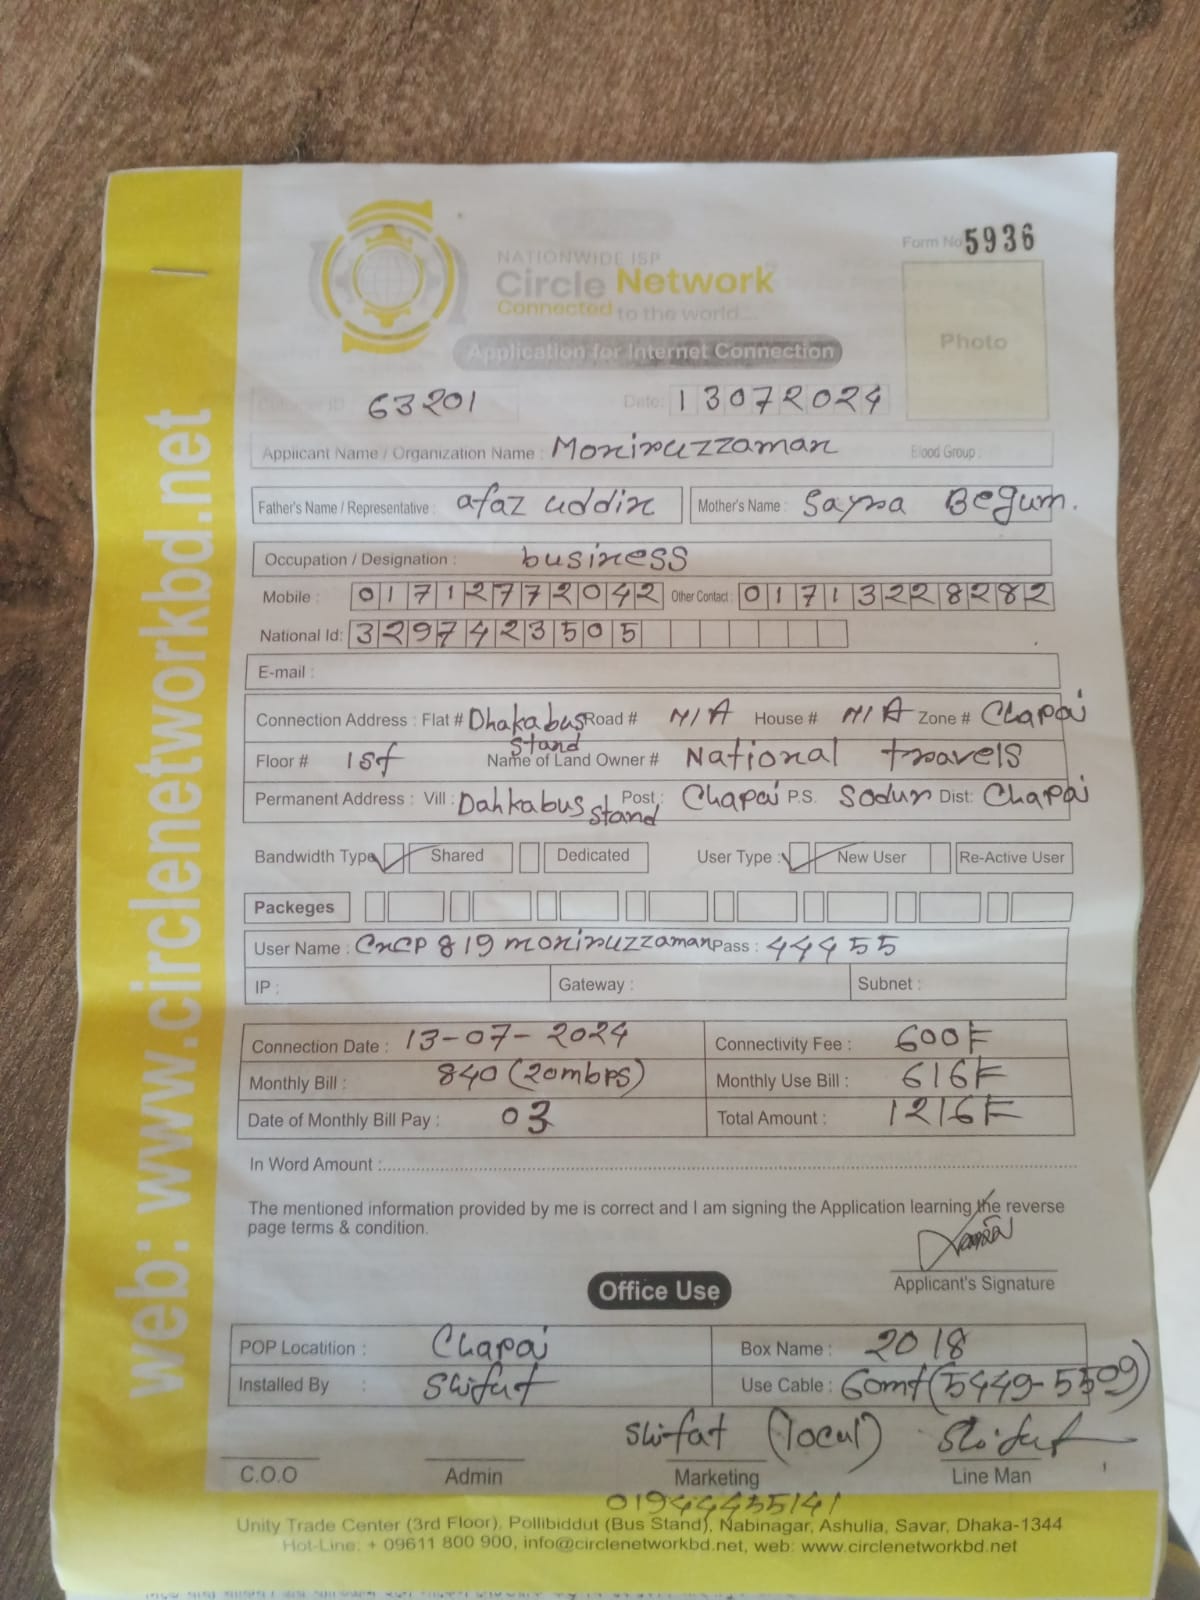 Form No 5936
NATIONWIDE ISP
Circle Network
Connected to the world...
Photo
Application for Internet Connection
Customer ID 63201 Date: 13072024
Applicant Name / Organization Name : Moniruzzaman Blood Group :
Father's Name / Representative : afaz uddin Mother's Name : Sayra Begum.
Occupation / Designation : business
Mobile : 01712772042 Other Contact : 01713228282
National Id: 3297423505
E-mail :
Connection Address : Flat # Dhaka bus stand Road # N/A House # N/A Zone # Chapai
Floor # 1st Name of Land Owner # National travels
Permanent Address : Vill : Dahkabus stand Post : Chapai P.S. Sodur Dist: Chapai
Bandwidth Type Shared Dedicated User Type : New User Re-Active User
Packeges
User Name : CNCP 819 moniruzzaman Pass : 44455
IP : Gateway : Subnet :
Connection Date : 13-07-2024 Connectivity Fee : 600F
Monthly Bill : 840 (20mbps) Monthly Use Bill : 616F
Date of Monthly Bill Pay : 03 Total Amount : 1216F
In Word Amount :
The mentioned information provided by me is correct and I am signing the Application learning the reverse
page terms & condition.
Applicant's Signature
Office Use
POP Locatition : Chapai Box Name : 2018
Installed By : Shifat Use Cable : 60mt (5449-5509)
Shifat (local) Shifat
C.O.O Admin Marketing Line Man
01944455141
Unity Trade Center (3rd Floor), Pollibiddut (Bus Stand), Nabinagar, Ashulia, Savar, Dhaka-1344
Hot-Line: + 09611 800 900, info@circlenetworkbd.net, web: www.circlenetworkbd.net
web: www.circlenetworkbd.net